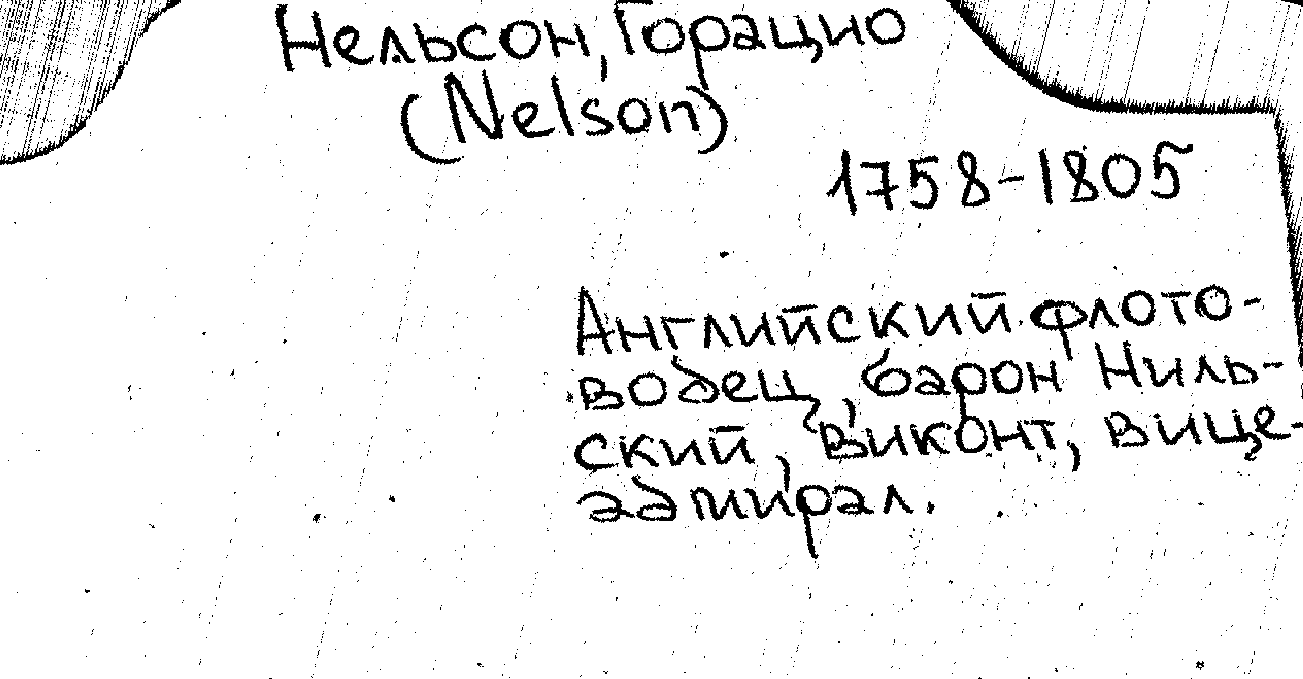 Нельсон, Горацио
(Nelson)
1758-1805
Английский флото-
водец, барон Ниль-
ский, виконт, вице-
адмирал.